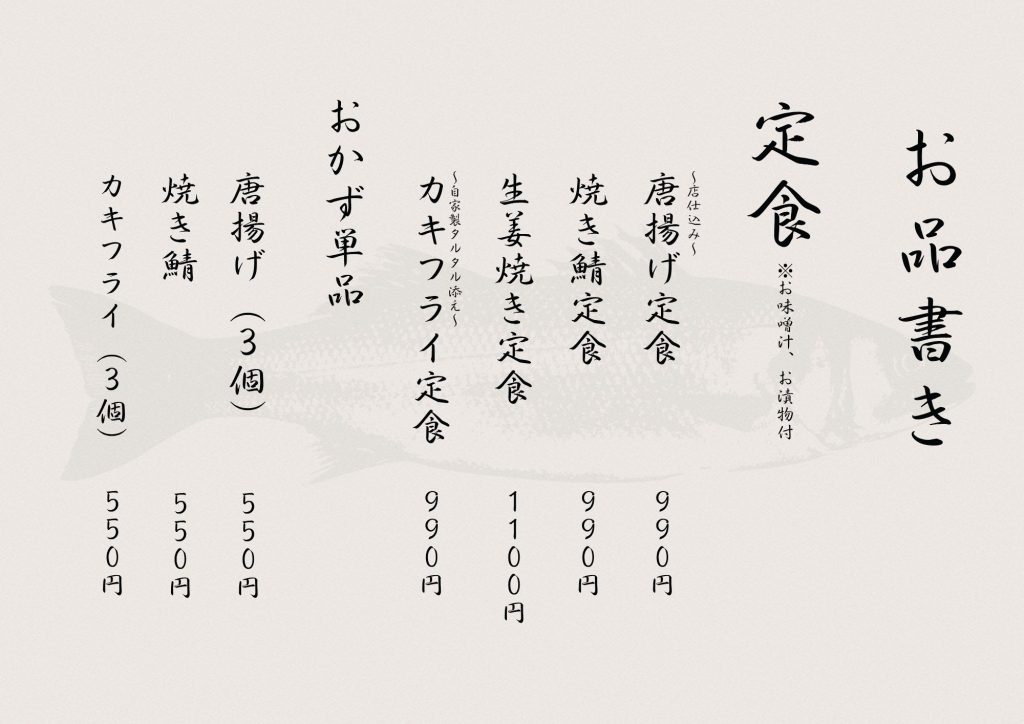 お品書き
定食 ※お味噌汁、お漬物付
～店仕込み～
唐揚げ定食 990円
焼き鯖定食 990円
生姜焼き定食 1100円
～自家製タルタル添え～
カキフライ定食 990円
おかず単品
唐揚げ（3個） 550円
焼き鯖 550円
カキフライ（3個） 550円